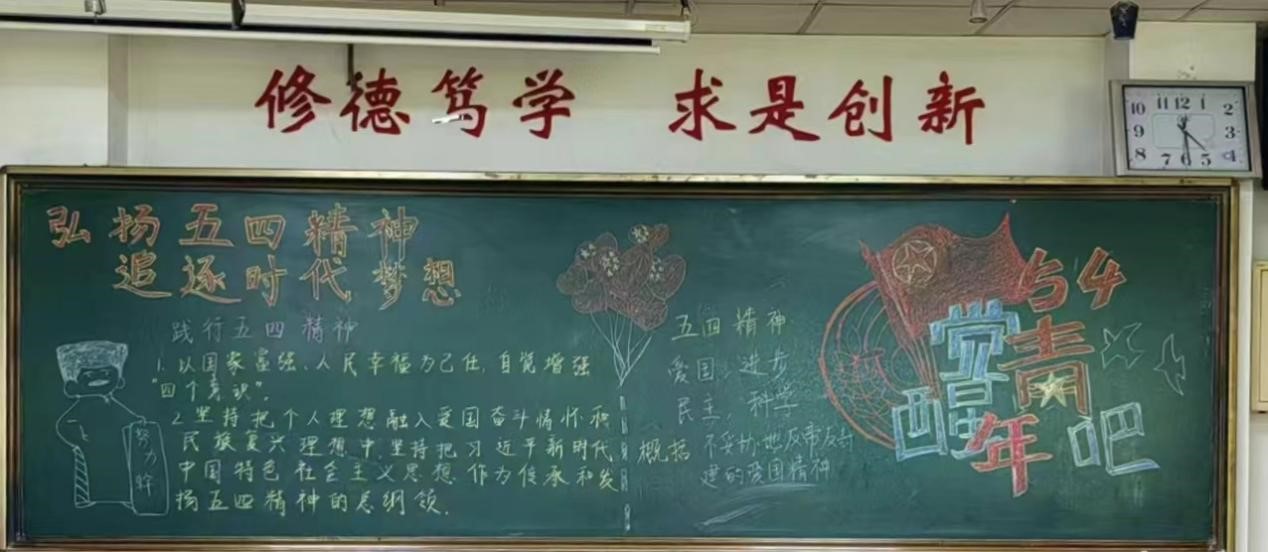 修德笃学 求是创新
10 11 12 1 2
9 3
8 7 6 5 4
弘扬五四精神
追逐时代梦想
践行五四精神
1. 以国家富强、人民幸福为己任,自觉增强
“四个意识”。
2. 坚持把个人理想融入爱国奋斗情怀和
民族复兴理想中,坚持把习近平新时代
中国特色社会主义思想作为传承和发
扬五四精神的总纲领。
努力幹
五四精神
爱国,进步
民主,科学
概括 不妥协地反帝反封
建的爱国精神
54
觉醒
青年
吧